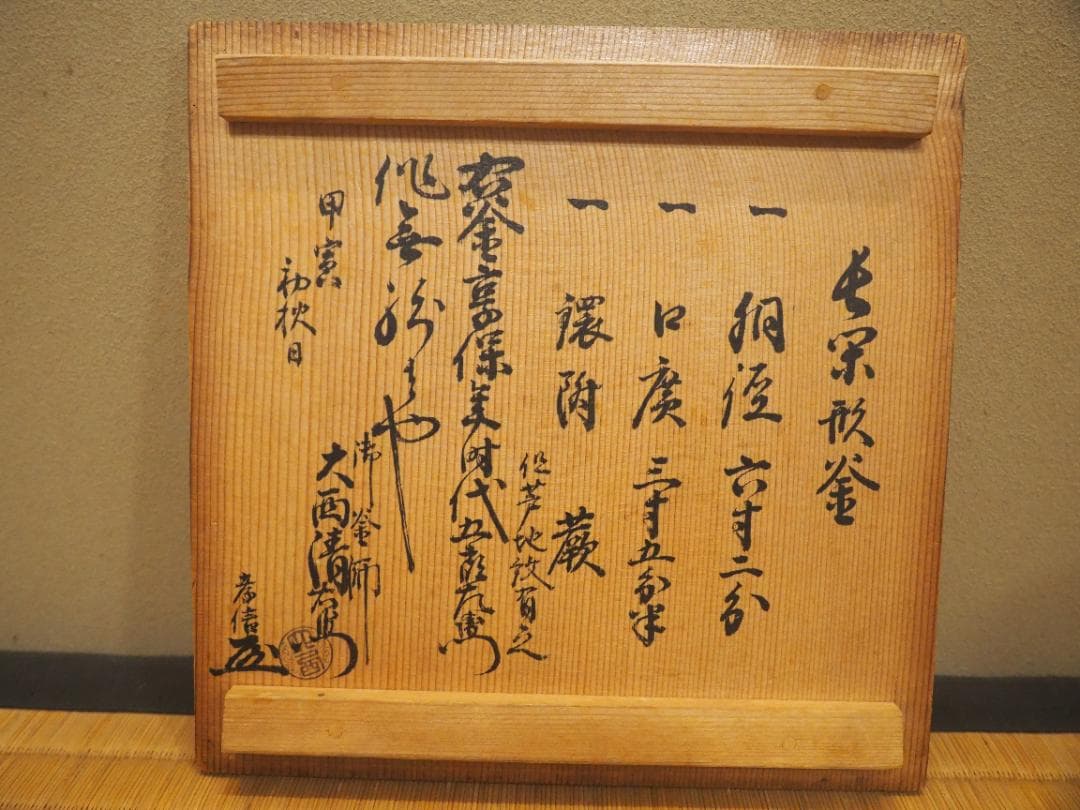 去閑形釜
一 胴径 六寸二分
一 口廣 三寸五分半
一 鐶附 蕨
但芦地紋有之
右釜享保年時代五郎左衛門
作無紛者也
甲寅
初秋日
御釜師
大西清右衛門
孝信